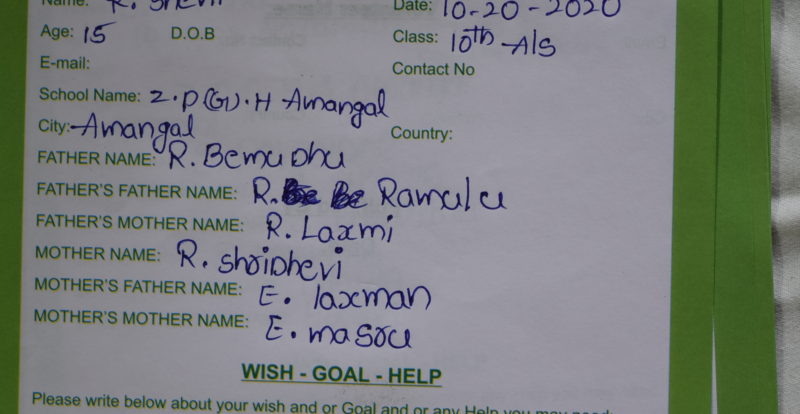 Name: R. Date: 10-20-2020
Age: 15 D.O.B Class: 10th A/s
E-mail: Contact No
School Name: Z.P(G).H Amangal
City: Amangal Country:
FATHER NAME: R. Bemudhu
FATHER'S FATHER NAME: R. Ramulu
FATHER'S MOTHER NAME: R. Laxmi
MOTHER NAME: R. shridhevi
MOTHER'S FATHER NAME: E. laxman
MOTHER'S MOTHER NAME: E. masru
WISH - GOAL - HELP
Please write below about your wish and or Goal and or any Help you may need: